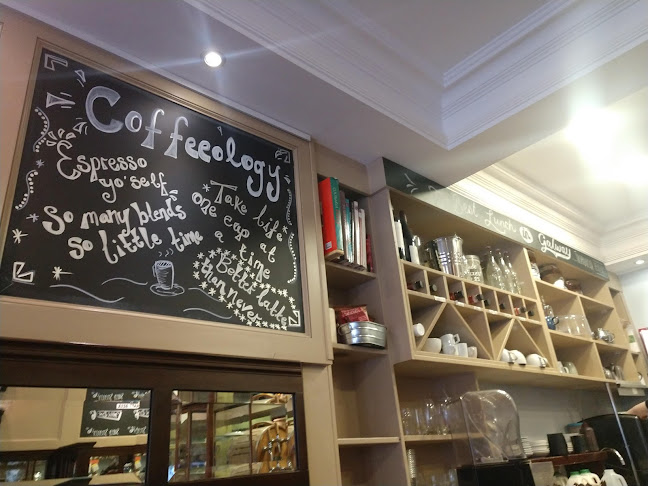 Coffeeology
Espresso
yo'self
So many blends
so little time
Take life
one cup at
a time
Better latte
than never
Lunch
Galway